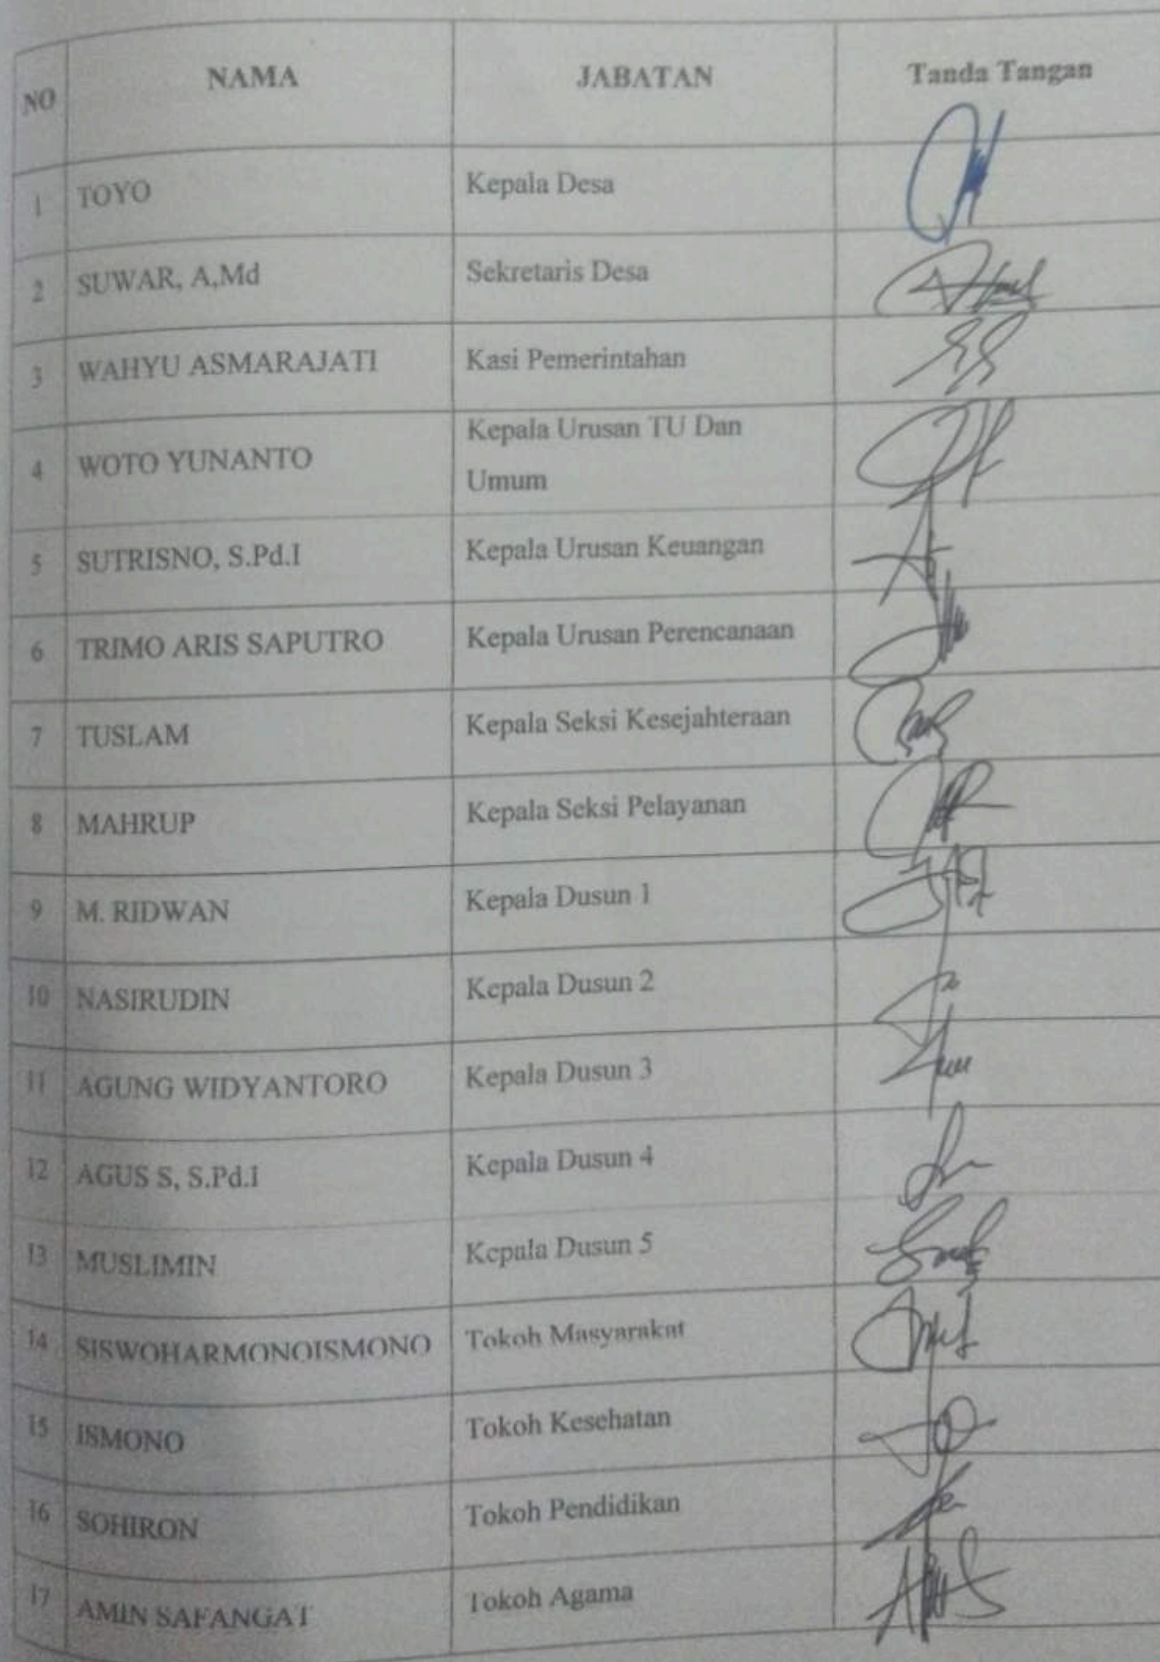 NO NAMA JABATAN Tanda Tangan
1 TOYO Kepala Desa
2 SUWAR, A,Md Sekretaris Desa
3 WAHYU ASMARAJATI Kasi Pemerintahan
4 WOTO YUNANTO Kepala Urusan TU Dan
Umum
5 SUTRISNO, S.Pd.I Kepala Urusan Keuangan
6 TRIMO ARIS SAPUTRO Kepala Urusan Perencanaan
7 TUSLAM Kepala Seksi Kesejahteraan
8 MAHRUP Kepala Seksi Pelayanan
9 M. RIDWAN Kepala Dusun 1
10 NASIRUDIN Kepala Dusun 2
11 AGUNG WIDYANTORO Kepala Dusun 3
12 AGUS S, S.Pd.I Kepala Dusun 4
13 MUSLIMIN Kepala Dusun 5
14 SISWOHARMONOISMONO Tokoh Masyarakat
15 ISMONO Tokoh Kesehatan
16 SOHIRON Tokoh Pendidikan
17 AMIN SAFANGAT Tokoh Agama